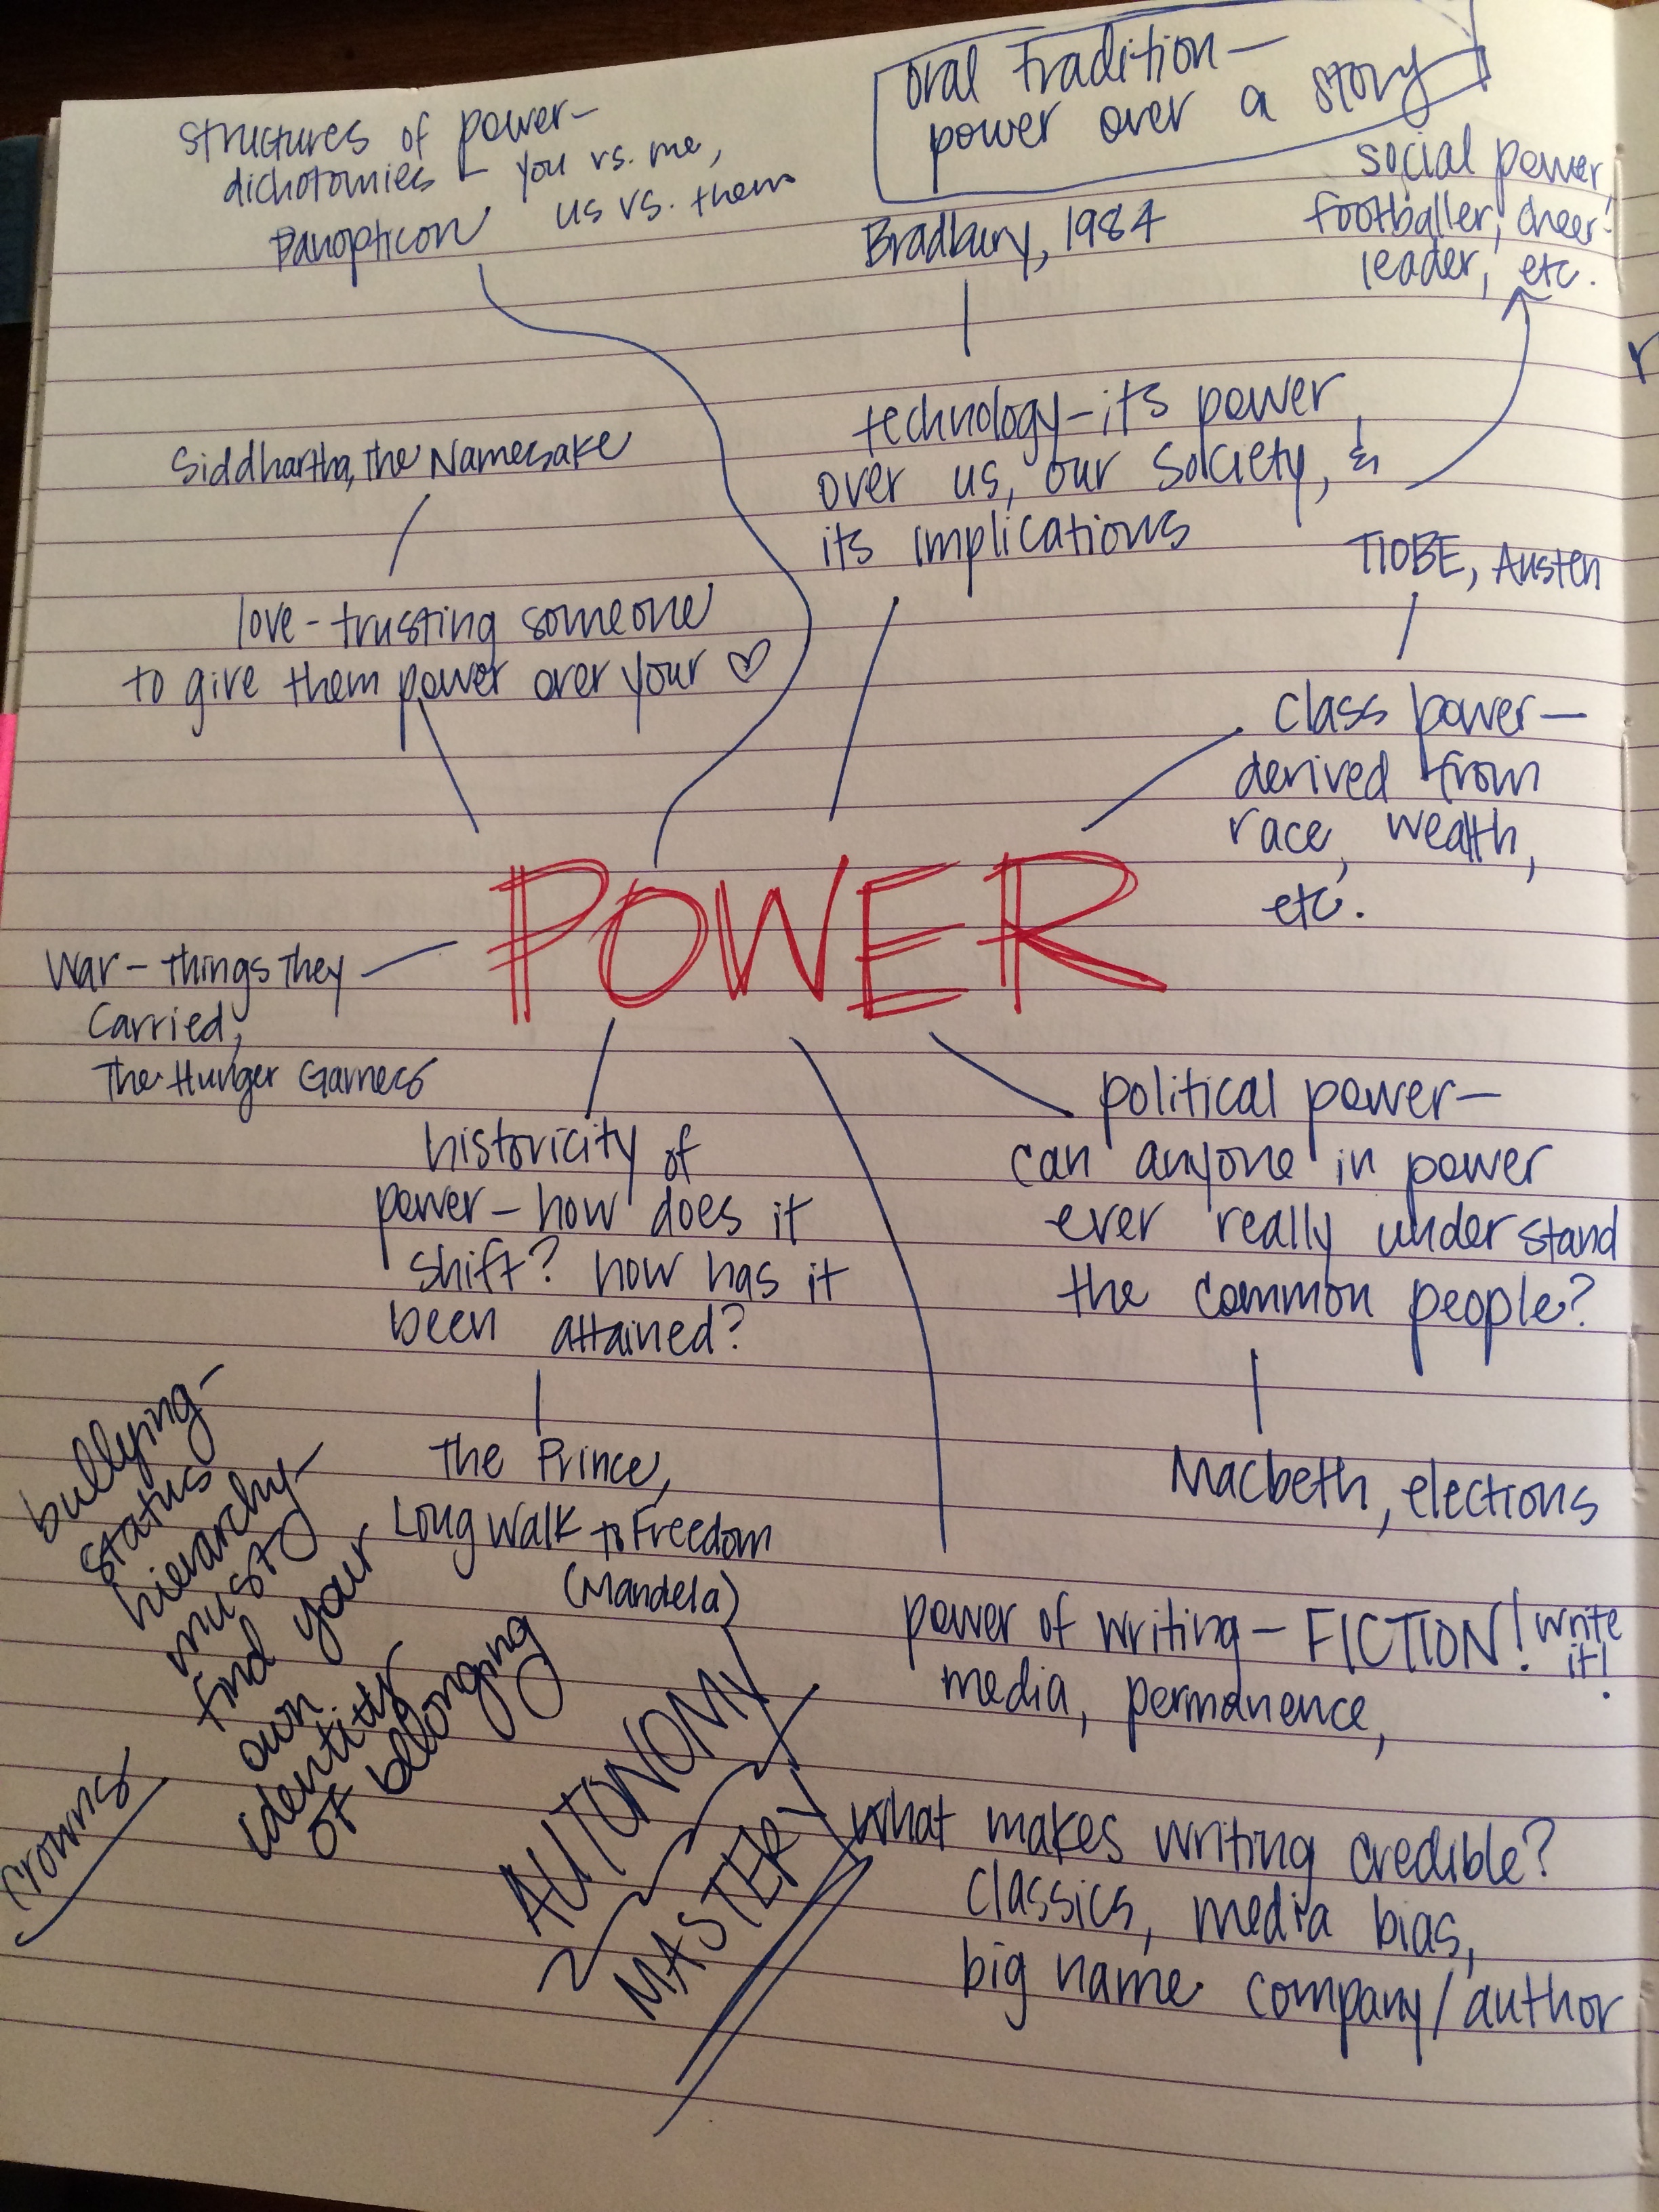 Oral Tradition—
power over a story
structures of power—
dichotomies - you vs. me,
us vs. them
Panopticon
Bradbury, 1984
social power,
footballer, cheer-
leader, etc.
Siddhartha, the Namesake
technology—its power
over us, our society, &
its implications
TIOBE, Austen
love - trusting someone
to give them power over your ♡
class power—
derived from
race, wealth,
etc.
POWER
War — Things They
Carried,
The Hunger Games
historicity of
power — how does it
shift? how has it
been attained?
political power—
can anyone in power
ever really understand
the common people?
The Prince,
Long Walk to Freedom
(Mandela)
Macbeth, elections
bullying—
status
hierarchy—
must
find your
own
identity
of belonging
crowns
AUTONOMY
MASTERY
power of writing — FICTION! write
it!
media, permanence,
What makes writing credible?
classics, media bias,
big name company/author